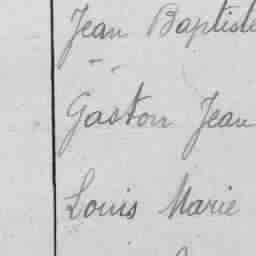 Jean Baptiste
Gaston Jean
Louis Marie